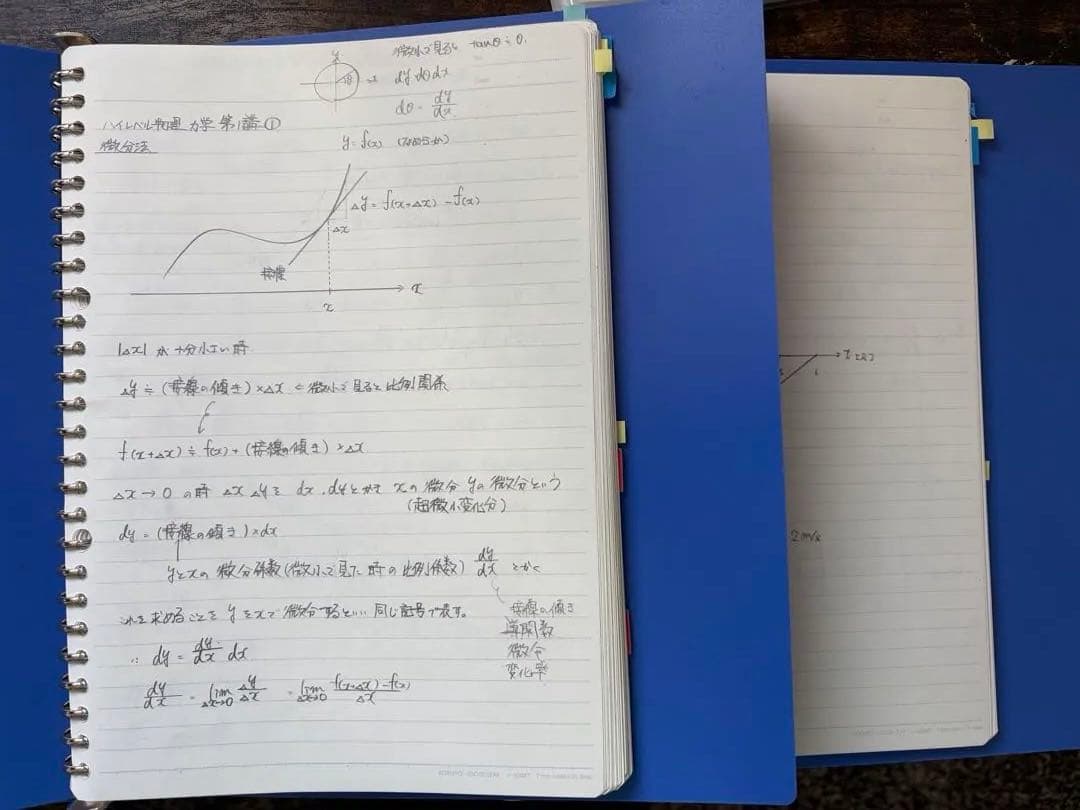 微小で見ると tanθ≒θ.
y
θ
x
dy dθ dx
dθ = dy/dx
ハイレベル物理 力学 第1講①
微分法
y = f(x) (なめらか)
Δy = f(x+Δx) - f(x)
Δx
接線
x
x
|Δx| が十分小さい時
Δy ≒ (接線の傾き)×Δx ← 微小で見ると比例関係
f(x+Δx) ≒ f(x) + (接線の傾き)×Δx
Δx→0 の時 Δx Δyを dx, dyとかき xの微分 yの微分という
(超微小変化分)
dy = (接線の傾き)×dx
yとxの微分係数(微小で見た時の比例係数) dy/dx とかく
これを求めることを yをxで微分するといい 同じ記号で表す。
接線の傾き
導関数
微分
変化率
∴ dy = dy/dx dx
dy/dx = lim Δx→0 Δy/Δx = lim Δx→0 f(x+Δx)-f(x)/Δx
2m/s